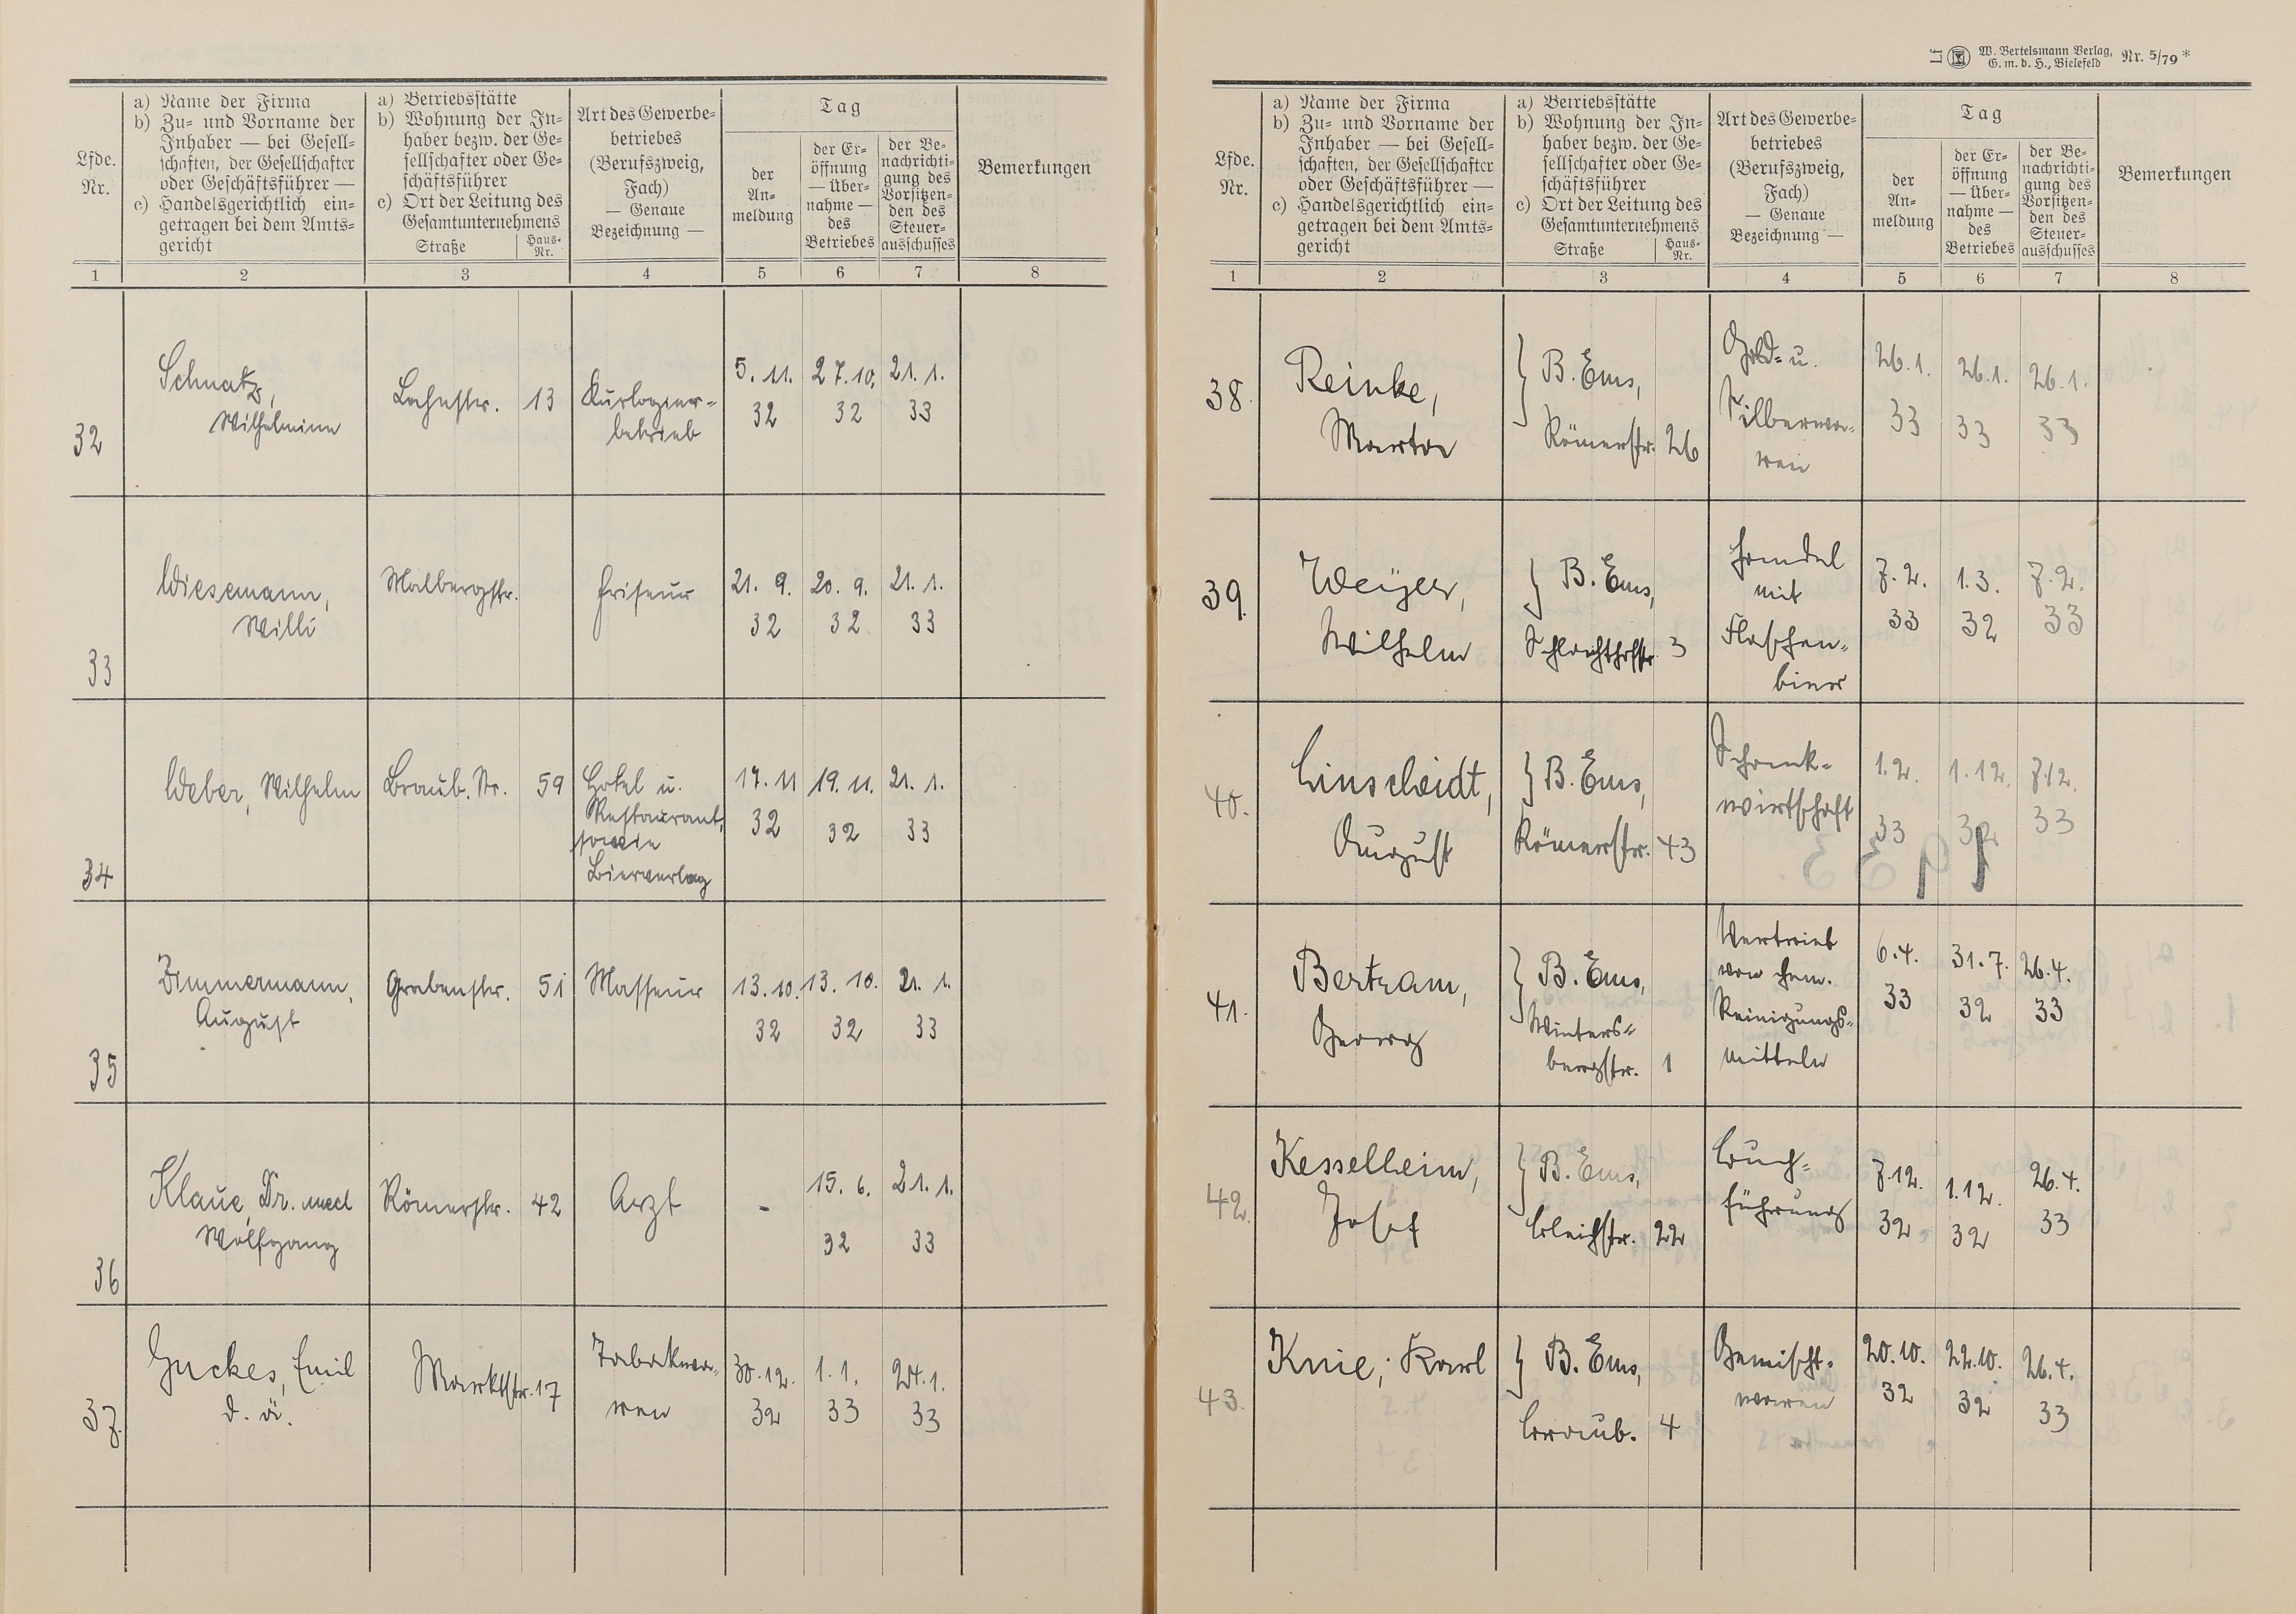 Lfde. Nr.
a) Name der Firma
b) Zu- und Vorname der
Inhaber — bei Gesell-
schaften, der Gesellschafter
oder Geschäftsführer —
c) Handelsgerichtlich ein-
getragen bei dem Amts-
gericht
a) Betriebsstätte
b) Wohnung der In-
haber bezw. der Ge-
sellschafter oder Ge-
schäftsführer
c) Ort der Leitung des
Gesamtunternehmens
Straße
Haus-Nr.
Art des Gewerbe-
betriebes
(Berufszweig,
Fach)
— Genaue
Bezeichnung —
Tag
der
An-
meldung
der Er-
öffnung
— Über-
nahme —
des
Betriebes
der Be-
nachrichti-
gung des
Vorsitzen-
den des
Steuer-
ausschusses
Bemerkungen
1 2 3 4 5 6 7 8
32 Schnatz, Wilhelmine Lahnstr. 13 Kurlogier-betrieb 5.11.32 27.10.32 21.1.33
33 Wiesemann, Willi Malbergstr. Friseur 21.9.32 20.9.32 21.1.33
34 Weber, Wilhelm Braub. Str. 59 Hotel u. Restaurant, sowie Bierverlag 17.11 32 19.11.32 21.1.33
35 Zimmermann, August Grabenstr. 51 Masseur 13.10.32 13.10.32 21.1.33
36 Klaue, Dr. med Wolfgang Römerstr. 42 Arzt - 15.6.32 21.1.33
37. Guckes, Emil d. ä. Marktstr. 17 Tabakwa-ren 30.12.32 1.1.33 24.1.33
W. Bertelsmann Verlag,
G. m. b. H., Bielefeld
Nr. 5/79*
Lfde. Nr.
a) Name der Firma
b) Zu- und Vorname der
Inhaber — bei Gesell-
schaften, der Gesellschafter
oder Geschäftsführer —
c) Handelsgerichtlich ein-
getragen bei dem Amts-
gericht
a) Betriebsstätte
b) Wohnung der In-
haber bezw. der Ge-
sellschafter oder Ge-
schäftsführer
c) Ort der Leitung des
Gesamtunternehmens
Straße
Haus-Nr.
Art des Gewerbe-
betriebes
(Berufszweig,
Fach)
— Genaue
Bezeichnung —
Tag
der
An-
meldung
der Er-
öffnung
— Über-
nahme —
des
Betriebes
der Be-
nachrichti-
gung des
Vorsitzen-
den des
Steuer-
ausschusses
Bemerkungen
1 2 3 4 5 6 7 8
38. Reinke, Marta B. Ems, Römerstr. 26 Gold- u. Silberwa-ren 26.1.33 26.1.33 26.1.33
39. Weyer, Wilhelm B. Ems, Schlachthofstr. 3 Handel mit Flaschen-bier 7.2.33 1.3.32 7.2.33
40. Linscheidt, August B. Ems, Römerstr. 43 Schank-wirtschaft 1.2.33 1.12.32 7.12.33
41. Bertram, Georg B. Ems, Winters-bergstr. 1 Vertrieb von chem. Reinigungs-mitteln 6.4.33 31.7.32 26.4.33
42. Kesselheim, Josef B. Ems, Bleichstr. 22 Buch-führung 7.12.32 1.12.32 26.4.33
43. Knie, Karl B. Ems, Braub. 4 Gemischt-waren 20.10.32 22.10.32 26.4.33